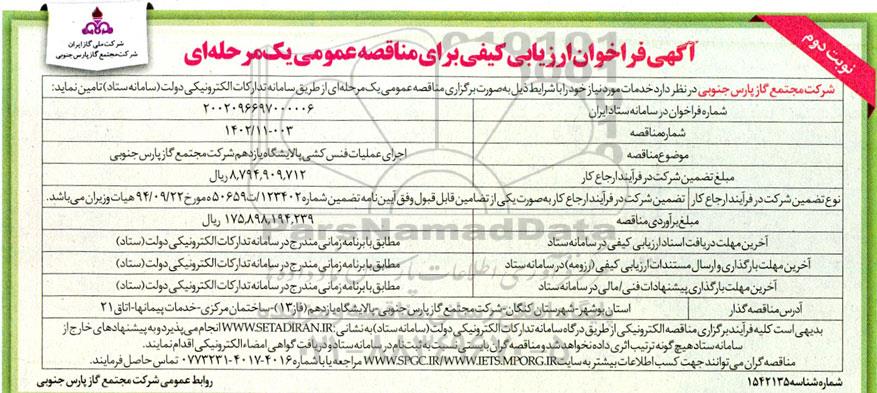 نوبت دوم
شرکت ملی گاز ایران
شرکت مجتمع گاز پارس جنوبی
آگهی فراخوان ارزیابی کیفی برای مناقصه عمومی یک مرحله‌ای
شرکت مجتمع گاز پارس جنوبی در نظر دارد خدمات مورد نیاز خود را با شرایط ذیل به صورت برگزاری مناقصه عمومی یک مرحله‌ای از طریق سامانه تدارکات الکترونیکی دولت (سامانه ستاد) تامین نماید:
شماره فراخوان در سامانه ستاد ایران ۲۰۰۲۰۹۶۶۹۷۰۰۰۰۰۶
شماره مناقصه ۱۴۰۲/۱۱-۰۰۳
موضوع مناقصه اجرای عملیات فنس کشی پالایشگاه یازدهم شرکت مجتمع گاز پارس جنوبی
مبلغ تضمین شرکت در فرآیند ارجاع کار ۸,۷۹۴,۹۰۹,۷۱۲ ریال
نوع تضمین شرکت در فرآیند ارجاع کار تضمین شرکت در فرآیند ارجاع کار به صورت یکی از تضامین قابل قبول وفق آیین نامه تضمین شماره ۱۲۳۴۰۲/ت۵۰۶۵۹ه مورخ ۹۴/۰۹/۲۲ هیات وزیران می‌باشد.
مبلغ برآوردی مناقصه ۱۷۵,۸۹۸,۱۹۴,۲۳۹ ریال
آخرین مهلت دریافت اسناد ارزیابی کیفی در سامانه ستاد مطابق با برنامه زمانی مندرج در سامانه تدارکات الکترونیکی دولت (ستاد)
آخرین مهلت بارگذاری و ارسال مستندات ارزیابی کیفی (رزومه) در سامانه ستاد مطابق با برنامه زمانی مندرج در سامانه تدارکات الکترونیکی دولت (ستاد)
آخرین مهلت بارگذاری پیشنهادات فنی/مالی در سامانه ستاد مطابق با برنامه زمانی مندرج در سامانه تدارکات الکترونیکی دولت (ستاد)
آدرس مناقصه گذار استان بوشهر-شهرستان کنگان-شرکت مجتمع گاز پارس جنوبی-پالایشگاه یازدهم (فاز ۱۳)-ساختمان مرکزی-خدمات پیمانها-اتاق ۲۱
بدیهی است کلیه فرآیند برگزاری مناقصه الکترونیکی از طریق درگاه سامانه تدارکات الکترونیکی دولت (سامانه ستاد) به نشانی: WWW.SETADIRAN.IR انجام می‌پذیرد و به پیشنهادهای خارج از
سامانه ستاد هیچ گونه ترتیب اثری داده نخواهد شد و مناقصه گران بایستی نسبت به ثبت نام در سامانه ستاد و دریافت گواهی امضاء الکترونیکی اقدام نمایند.
مناقصه گران می‌توانند جهت کسب اطلاعات بیشتر به سایت WWW.SPGC.IR/WWW.IETS.MPORG.IR مراجعه یا با شماره ۴۰۱۶-۴۰۱۷-۰۷۷۳۲۳۱ تماس حاصل فرمایند.
شماره شناسه ۱۵۴۲۱۳۵
روابط عمومی شرکت مجتمع گاز پارس جنوبی
ParsNamadData